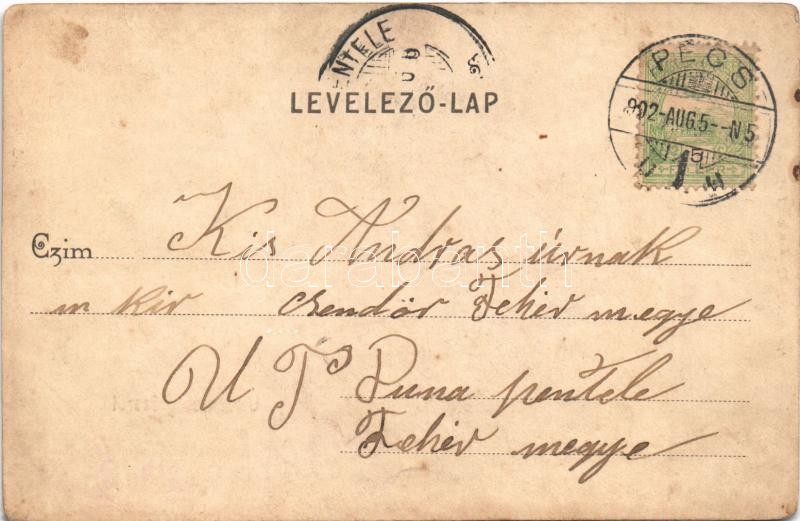 NTELE
LEVELEZŐ-LAP
PÉCS
902-AUG.5--N5
Czim Kis András úrnak
m kir csendőr Fehér megye
U T P Duna pentele
Fehér megye
darabanth